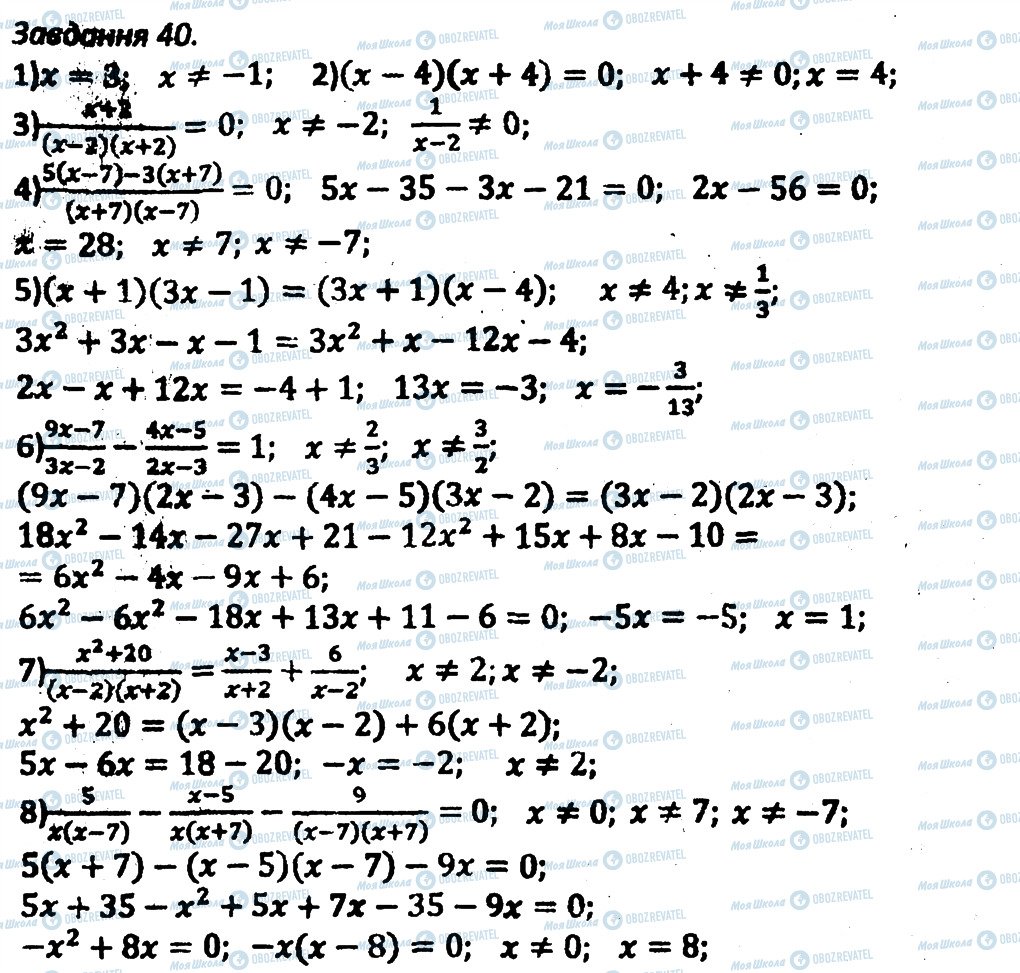 Завдання 40.
1) x = 3; x ≠ −1; 2)(x − 4)(x + 4) = 0; x + 4 ≠ 0; x = 4;
3) \frac{x+2}{(x−2)(x+2)} = 0; x ≠ −2; \frac{1}{x−2} ≠ 0;
4) \frac{5(x−7)−3(x+7)}{(x+7)(x−7)} = 0; 5x − 35 − 3x − 21 = 0; 2x − 56 = 0;
x = 28; x ≠ 7; x ≠ −7;
5)(x + 1)(3x − 1) = (3x + 1)(x − 4); x ≠ 4; x ≠ \frac{1}{3};
3x² + 3x − x − 1 = 3x² + x − 12x − 4;
2x − x + 12x = −4 + 1; 13x = −3; x = −\frac{3}{13};
6) \frac{9x−7}{3x−2} − \frac{4x−5}{2x−3} = 1; x ≠ \frac{2}{3}; x ≠ \frac{3}{2};
(9x − 7)(2x − 3) − (4x − 5)(3x − 2) = (3x − 2)(2x − 3);
18x² − 14x − 27x + 21 − 12x² + 15x + 8x − 10 =
= 6x² − 4x − 9x + 6;
6x² − 6x² − 18x + 13x + 11 − 6 = 0; −5x = −5; x = 1;
7) \frac{x²+20}{(x−2)(x+2)} = \frac{x−3}{x+2} + \frac{6}{x−2}; x ≠ 2; x ≠ −2;
x² + 20 = (x − 3)(x − 2) + 6(x + 2);
5x − 6x = 18 − 20; −x = −2; x ≠ 2;
8) \frac{5}{x(x−7)} − \frac{x−5}{x(x+7)} − \frac{9}{(x−7)(x+7)} = 0; x ≠ 0; x ≠ 7; x ≠ −7;
5(x + 7) − (x − 5)(x − 7) − 9x = 0;
5x + 35 − x² + 5x + 7x − 35 − 9x = 0;
−x² + 8x = 0; −x(x − 8) = 0; x ≠ 0; x = 8;
Моя Школа OBOZREVATEL